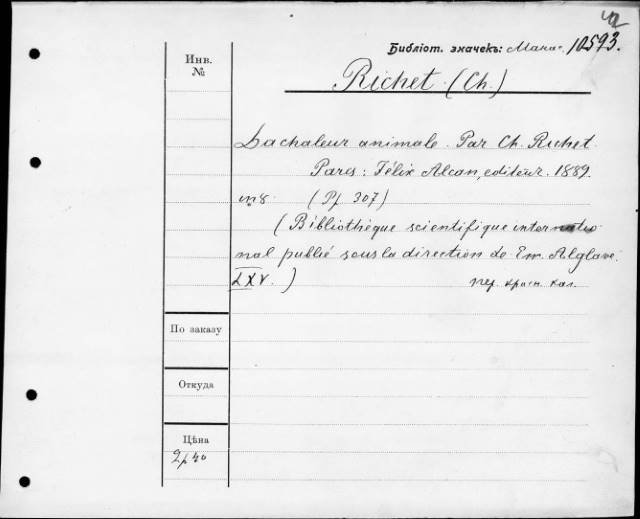 Библіот. значекъ: 10593.
Инв.
№
Richet (Ch.)
La chaleur animale. Par Ch. Richet.
Paris: Félix Alcan, editeur. 1889.
in 8 (Pf 307)
(Bibliothèque scientifique internatio
nal publié sous la direction de Em. Alglave.
LXV.)
пер. красн. кал.
По заказу
Откуда
Цѣна
2р 40